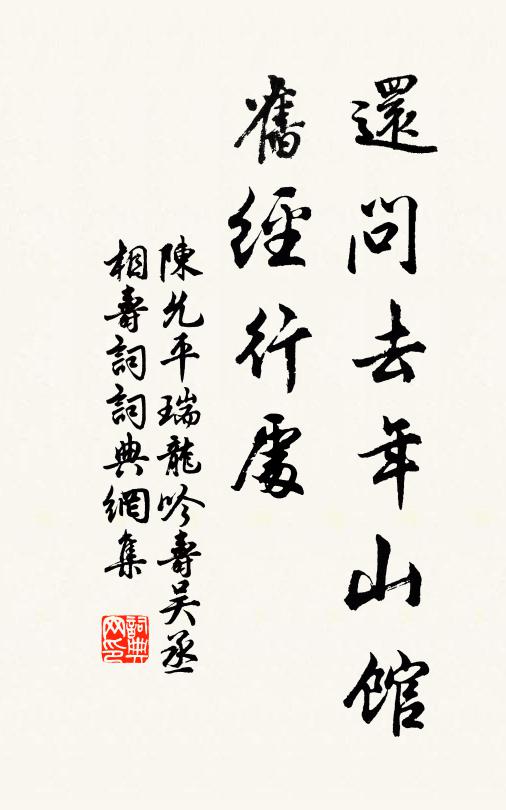 還問去年山館
舊經行處
陳允平瑞龍吟壽吳丞
相壽詞詞典網集
詞典
网印